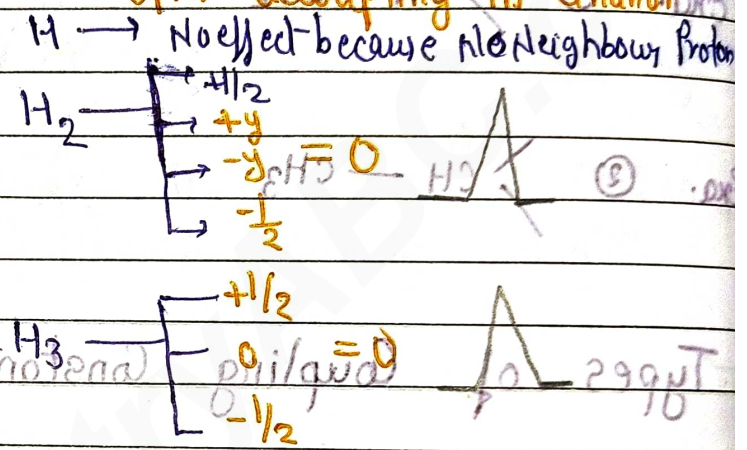 H → No effect because No Neighbour Proton
H2
+1/2
+y
-y = 0
-1/2
H3
+1/2
0 = 0
-1/2